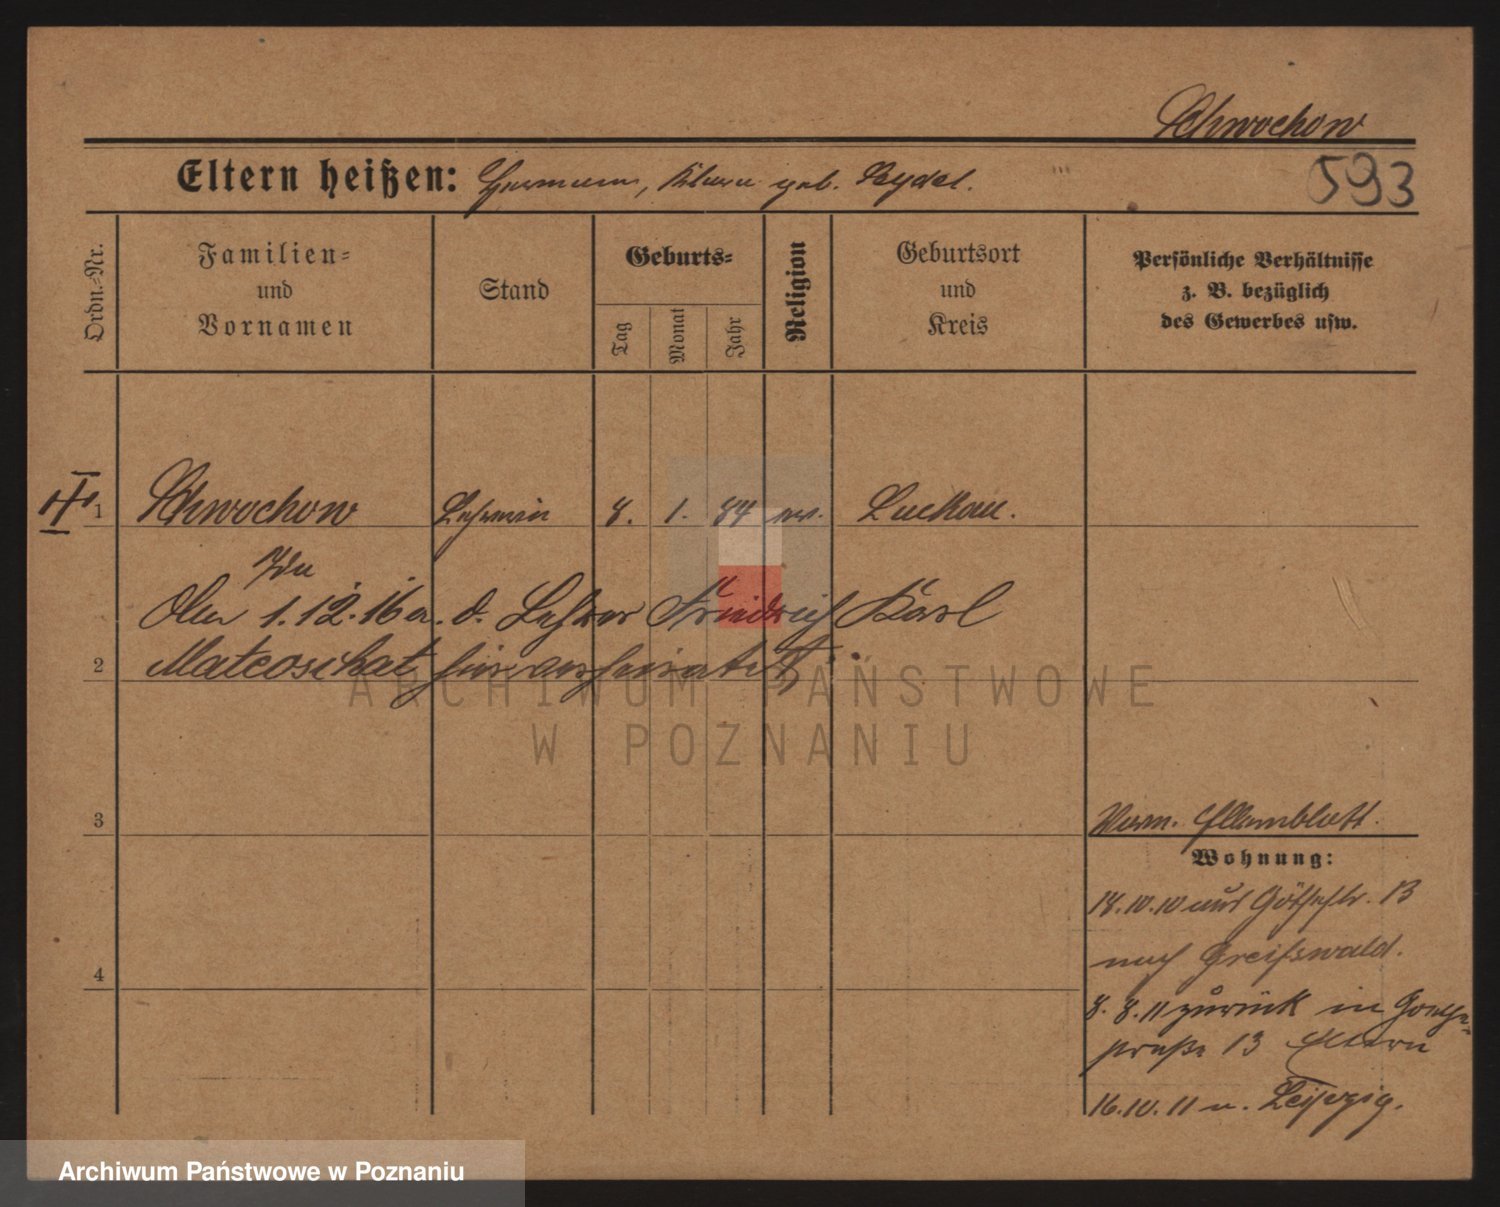 Schwochow
593
Eltern heißen: Hermann, Klara geb. Seydel.
Ordn.-Nr.
Familien-
und
Vornamen
Stand
Geburts-
Tag
Monat
Jahr
Religion
Geburtsort
und
Kreis
Persönliche Verhältnisse
z. B. bezüglich
des Gewerbes usw.
1 Schwochow Lehrerin 8. 1. 84 ev. Luckau.
Ida
Am 1.12.16 a. d. Lehrer Friedrich Karl
2 Mateoschat hier verheiratet.
3
Vorm. Elternblatt.
Wohnung:
18.10.10 aus Göthestr. 13
nach Greifswald.
4
8. 8. 11 zurück in Goethe-
straße 13 Eltern
16.10.11 n. Leipzig.
ARCHIWUM PAŃSTWOWE
W POZNANIU
Archiwum Państwowe w Poznaniu